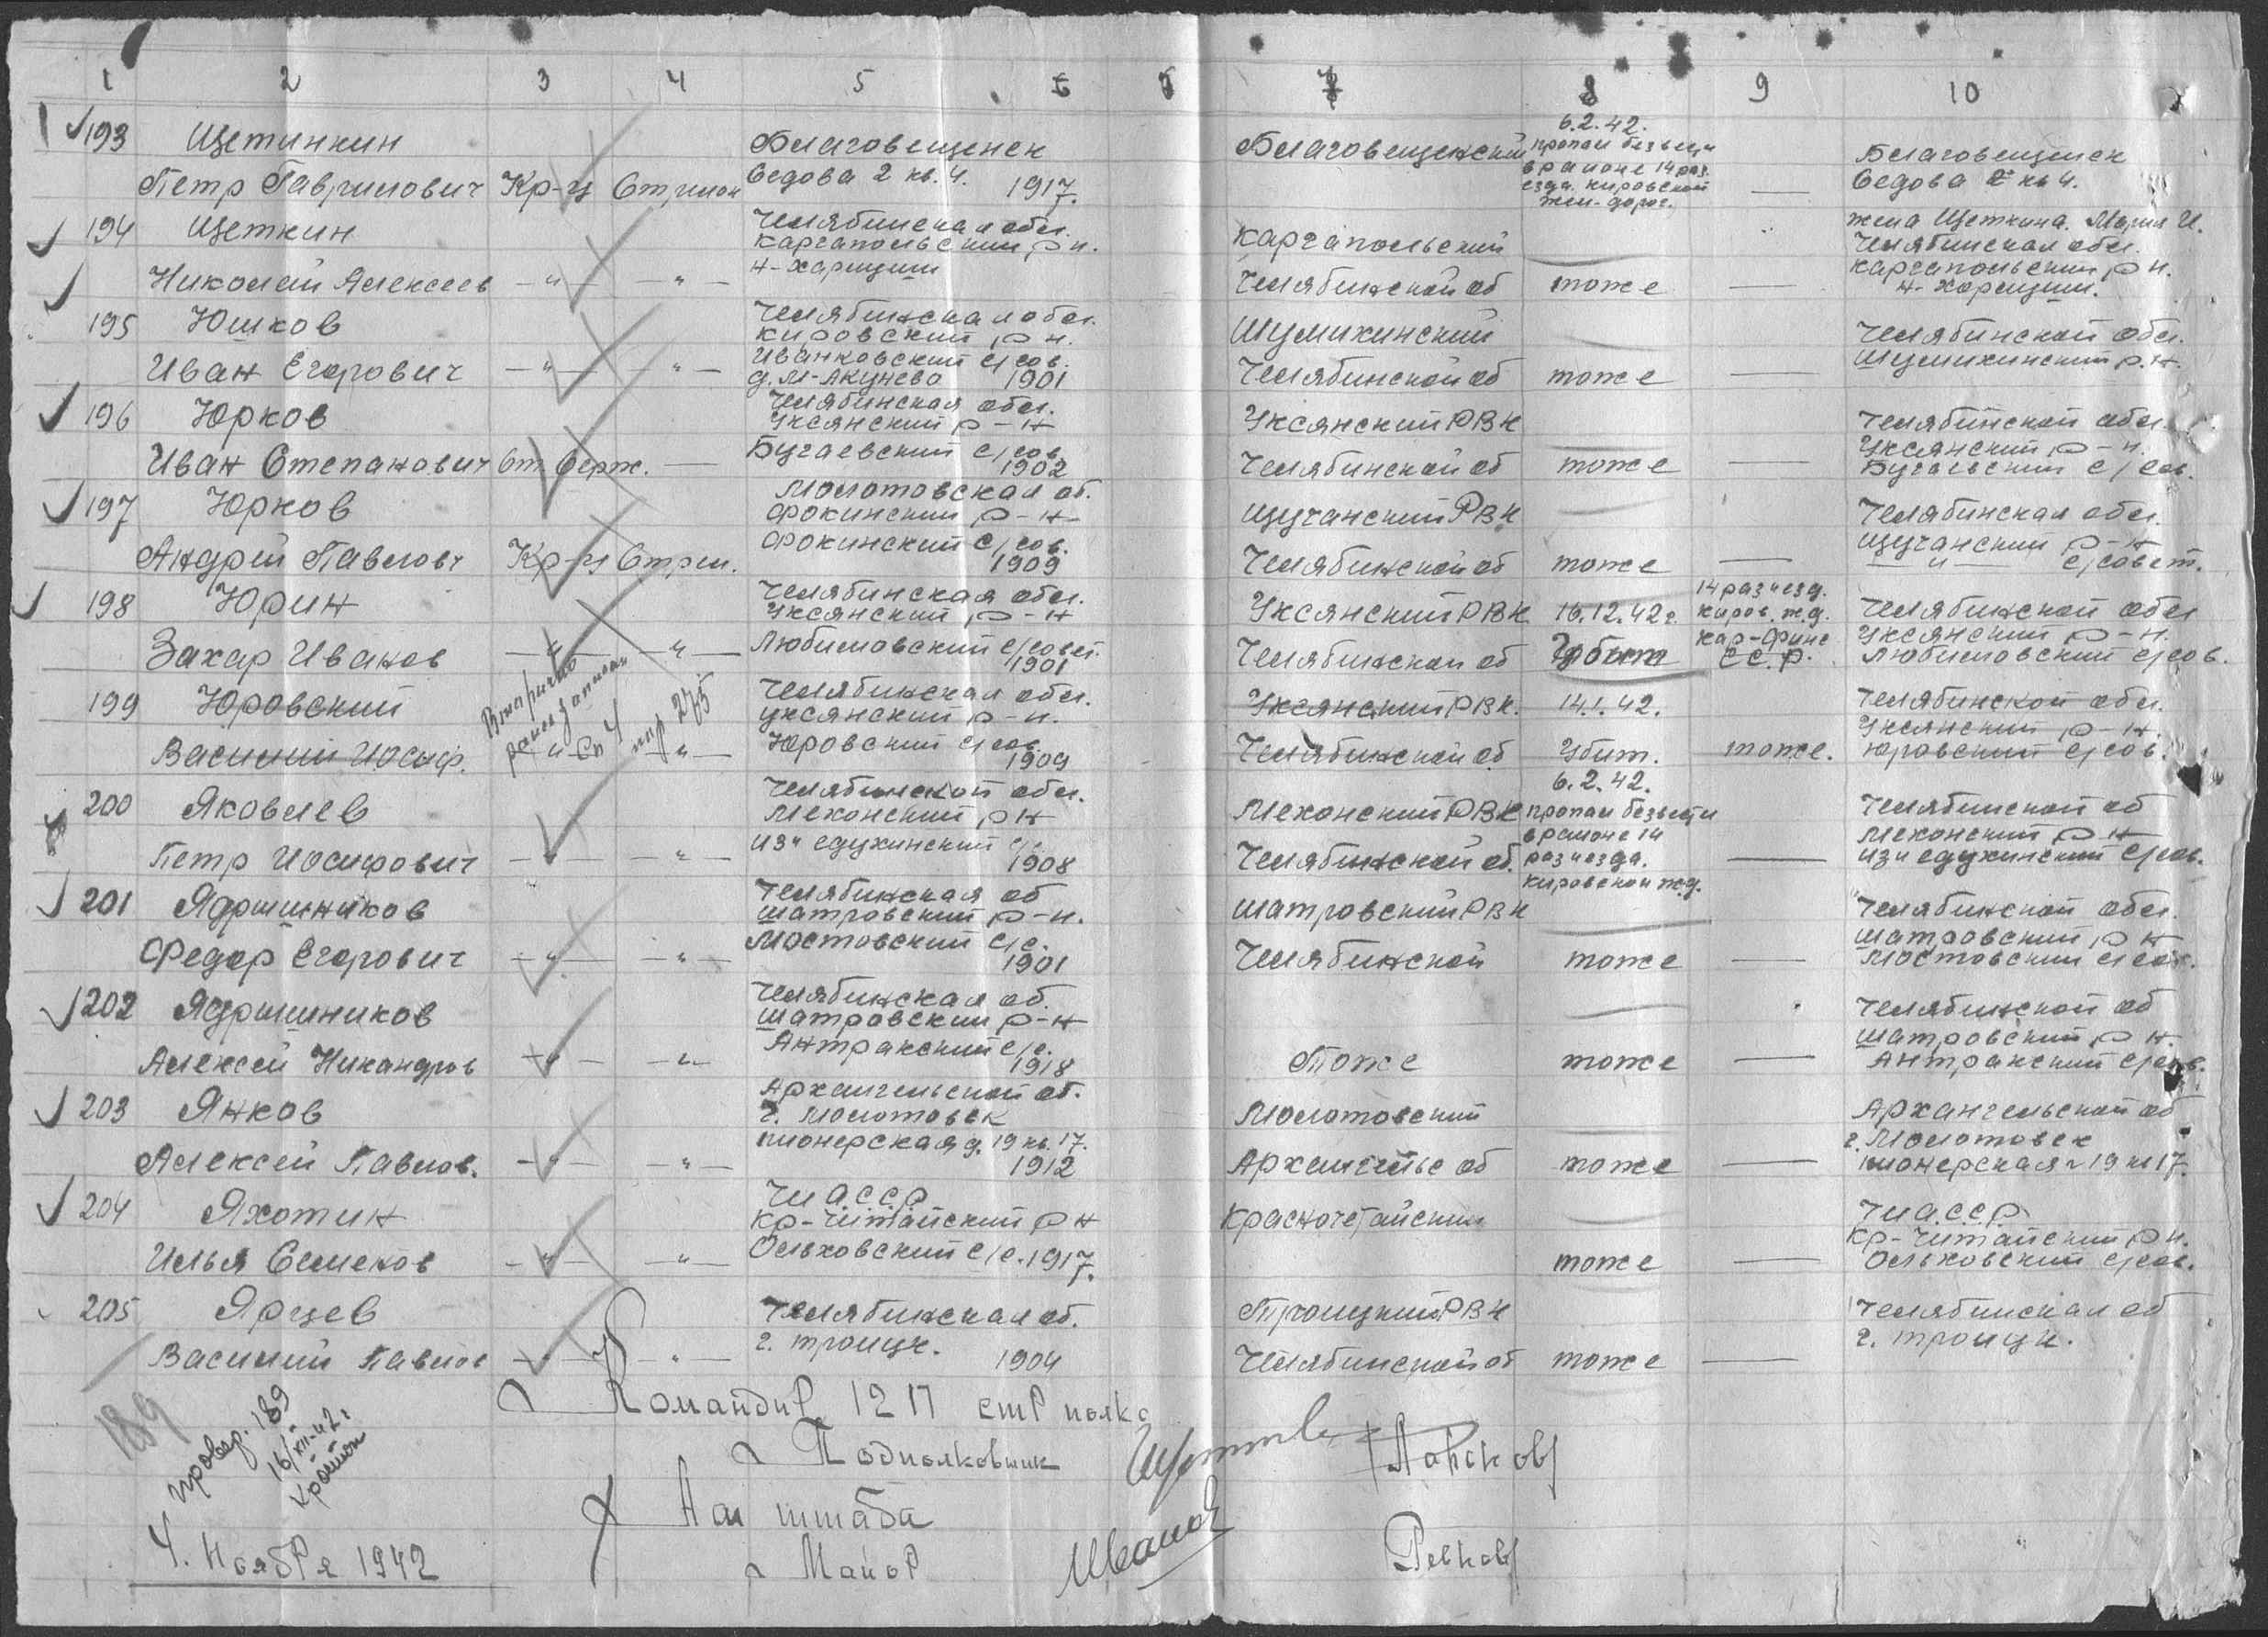 1 2 3 4 5 6 7 8 9 10
193 Щетинкин
Петр Гаврилович Кр-ц Стрелок
Благовещенск
Седова 2 кв. 4. 1917.
Благовещенский
6.2.42.
пропал безвести
в районе 14 раз.
езда. кировской
жел-дорог.
—
Благовещенск
Седова 2 кв 4.
194 Щеткин
Николай Алексеев — " — — " —
Челябинская обл.
Каргапольский р н.
Каргапольский
Челябинской об
тоже
—
жена Щеткина. Мария И.
Челябинская обл.
Каргапольский р н.
195 Юшков
Иван Егорович — " — — " —
Челябинская обл.
Кировский р н.
Иванковский с/сов.
д. М-Акунево 1901
Шумихинский
Челябинской об
тоже
—
Челябинской обл.
Шумихинский р.н.
196 Юрков
Иван Степанович Ст Серж. —
Челябинская обл.
Уксянский р-н
Бугаевский с/сов
1902
Уксянский РВК
Челябинской об
тоже
—
Челябинской обл.
Уксянский р-н.
Бугаевский с/сов.
197 Юрков
Андрей Павлович Кр-ц Стрел.
Молотовская об.
Фокинский р-н
Фокинский с/сов.
1909
Щучанский РВК
Челябинской об
тоже
—
Челябинская обл.
Щучанский р-н
— " — с/совет.
198 Юрин
Захар Иванов — " — — " —
Челябинская обл.
Уксянский р-н
Любимовский с/совет.
1901
Уксянский РВК
Челябинской об
16.12.42г.
Убит
14 разъезд.
Киров. ж.д.
Кар-Финс
С С. Р.
Челябинской обл
Уксянский р-н.
Любимовский с/сов.
199 Юровский
Василий Иосиф.
Вторично
ранее записан
Сп Ч пр 275
Челябинская обл.
Уксянский р-н.
Юровский с/сов.
1909
Уксянский РВК.
Челябинской об
14.1.42.
Убит.
тоже.
Челябинской обл.
Уксянский р-н.
Юровский с/сов.
200 Яковлев
Петр Иосифович — " — — " —
Челябинской обл.
Мехонский р н
1908
Мехонский РВК
Челябинской об.
6.2.42.
пропал безвести
в районе 14
разъезда.
Кировской ж.д.
—
Челябинской об
Мехонский р н
201 Ядрышников
Федор Егорович — " — — " —
Челябинская об
Шатровский р-н.
Мостовский с/с.
1901
Шатровский РВК
Челябинской
тоже
—
Челябинской обл.
Шатровский р н
Мостовский с/сов.
202 Ядрышников
Алексей Никандров — " — — " —
Челябинская об.
Шатровский р-н
Антракский с/с.
1918
Тоже
тоже
—
Челябинской об
Шатровский р н.
Антракский с/сов.
203 Янков
Алексей Павлов. — " — — " —
Архангельской об.
г. Молотовск
пионерская д. 19 кв. 17.
1912
Молотовский
Архангельс об
тоже
—
Архангельской об
г. Молотовск
пионерская 19 кв 17.
204 Яхотин
Илья Семенов — " — — " —
Чу А.С.С.Р.
Кр-Читайский р н
Ольховский с/с. 1917.
Красночетайский
тоже
—
Чу А.С.С.Р.
Кр-Читайский р н.
Ольховский с/сов.
205 Ярцев
Василий Павлов — " — — " —
Челябинская об.
г. Троицк.
1904
Троицкий РВК
Челябинской об
тоже
—
Челябинская об
г. Троицк.
189
провер. 189
16/XII-42г
Командир 1217 стр полка
Подполковник
Нач штаба
Майор
4. Ноября 1942